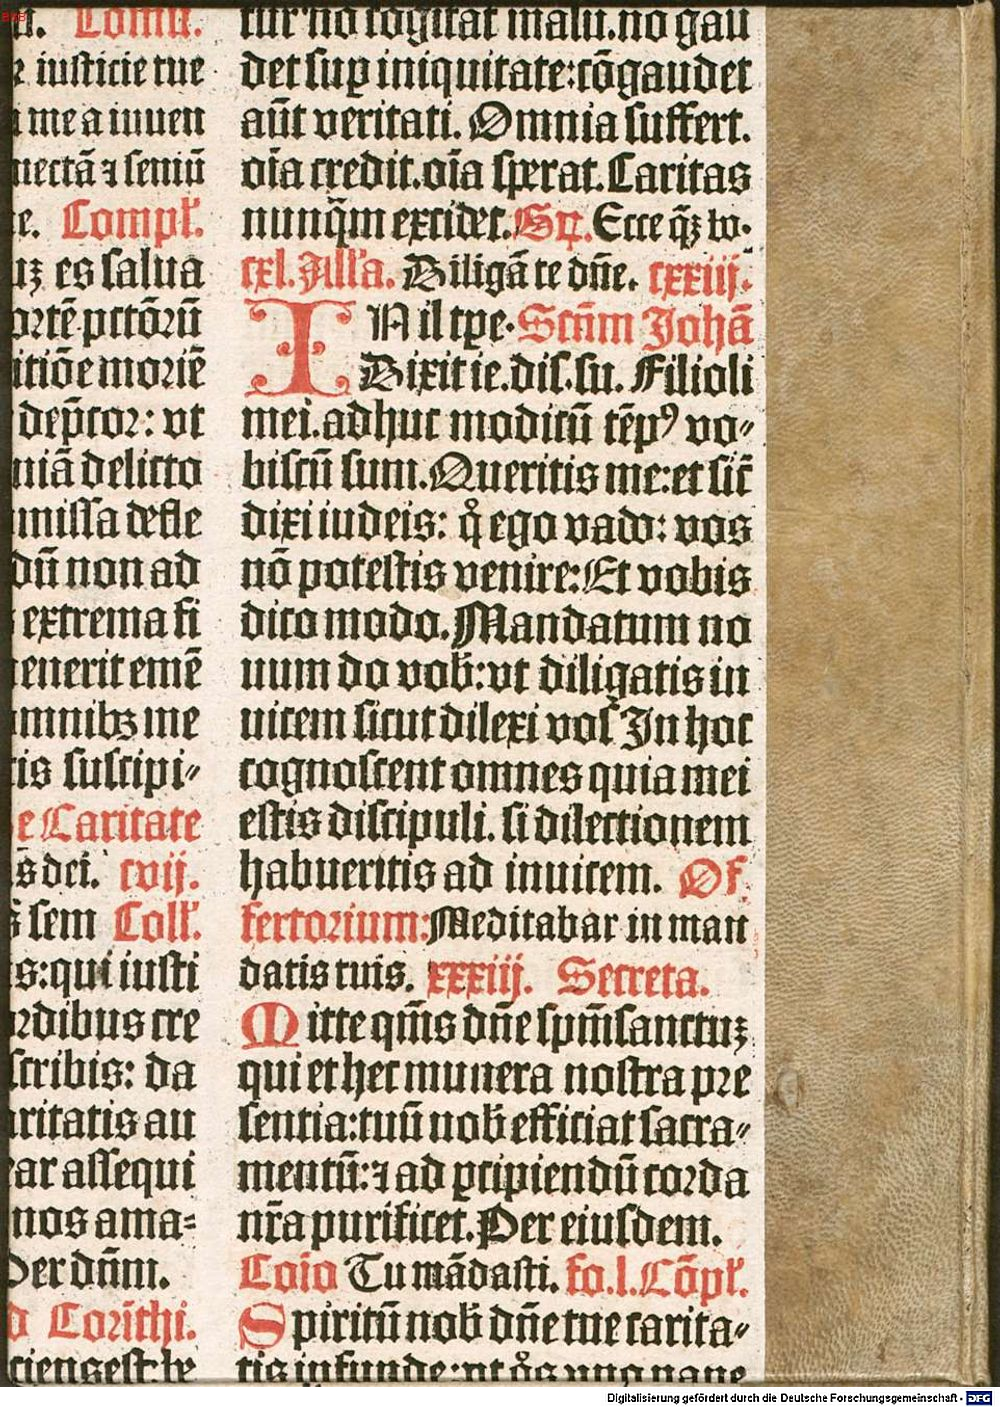 u. Comū.
iusticie tue
me a iuuen
nectā ⁊ seniū
e. Compl'.
uʒ es salua
ortē pctōrū
itiōe moriē
dep̄cor: vt
niā delicto
missa defle
dū non ad
extrema fi
enerit emē
mnibʒ me
is suscipi⸗
e Caritate
s dei. cvij.
sem Coll'.
s: qui iusti
rdibus cre
scribis: da
aritatis au
ear assequi
nos ama⸗
Per dn̄m.
d Corīthi.
ciens est: be
tur nō cogitat malū. nō gau
det suꝑ iniquitate: cōgaudet
aūt veritati. Omnia suffert.
oīa credit. oīa sperat. Caritas
nunq̄m excidet. Gr̄. Ecce q̄ʒ bo.
cxl. Alľa. Diligā te dn̄e. cxxiij.
IN il tꝑe. Scūm Johā
Dixit ie. dis. su. Filioli
mei. adhuc modicū tēpꝰ vo⸗
biscū sum. Queritis me: et sic̄
dixi iudeis: qͦ ego vado: vos
nō potestis venire: Et vobis
dico modo. Mandatum no
uum do vob̄: vt diligatis in
uicem sicut dilexi vos. In hoc
cognoscent omnes quia mei
estis discipuli. si dilectionem
habueritis ad inuicem. Of
fertorium: Meditabar in man
datis tuis. xxxiij. Secreta.
Mitte qm̄s dn̄e spm̄ sanctuʒ
qui et hec munera nostra pre
sentia: tuū nob̄ efficiat sacra⸗
mentū: ⁊ ad ꝑcipiendū corda
nr̄a purificet. Per eiusdem.
Coīo Tu mādasti. fo. l. Cōpl'.
Spiritū nob̄ dn̄e tue carita⸗
tis infunde: vt qͦs vno pane
Digitalisierung gefördert durch die Deutsche Forschungsgemeinschaft - DFG